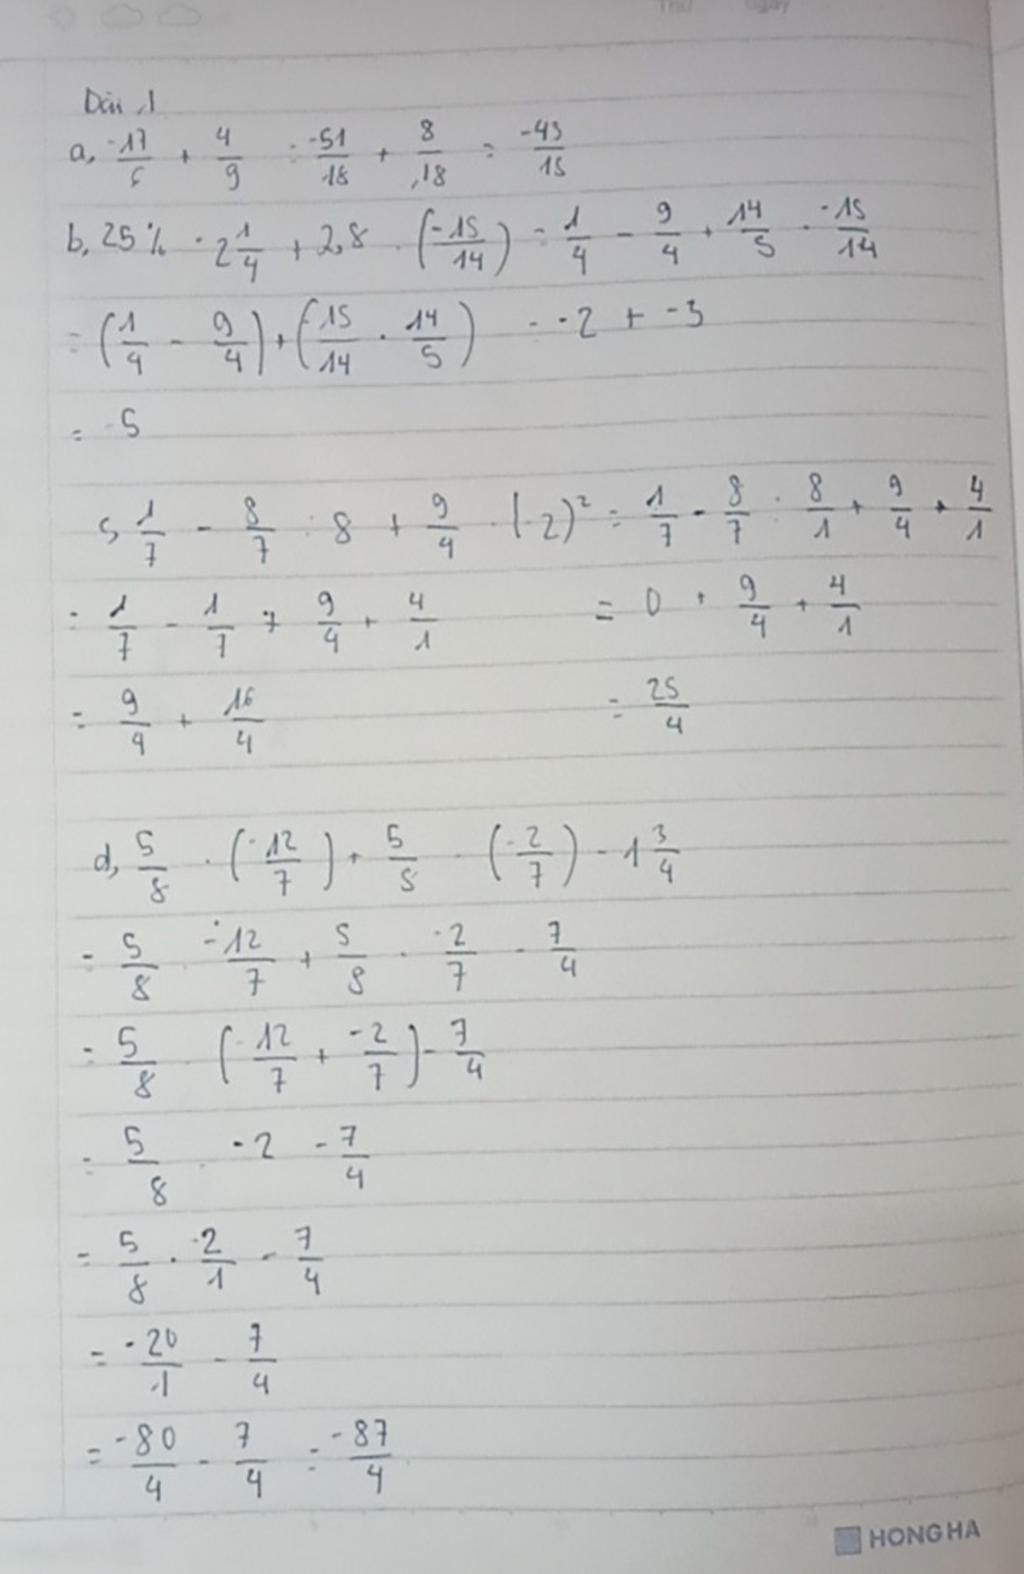 Bài 1
a, -17/6 + 4/9 = -51/18 + 8/18 = -43/18
b, 25% - 2 1/4 + 2,8 . (-15/14) = 1/4 - 9/4 + 14/5 . -15/14
= (1/4 - 9/4) + (-15/14 . 14/5) = -2 + -3
= -5
c, 1/7 - 8/7 : 8 + 9/4 . (-2)² = 1/7 - 8/7 : 8/1 + 9/4 + 4/1
= 1/7 - 1/7 + 9/4 + 4/1 = 0 + 9/4 + 4/1
= 9/4 + 16/4 = 25/4
d, 5/8 . (-12/7) + 5/8 . (-2/7) - 1 3/4
= 5/8 . -12/7 + 5/8 . -2/7 - 7/4
= 5/8 . (-12/7 + -2/7) - 7/4
= 5/8 . -2 - 7/4
= 5/8 . -2/1 - 7/4
= -20/1 - 7/4
= -80/4 - 7/4 = -87/4
HONG HA